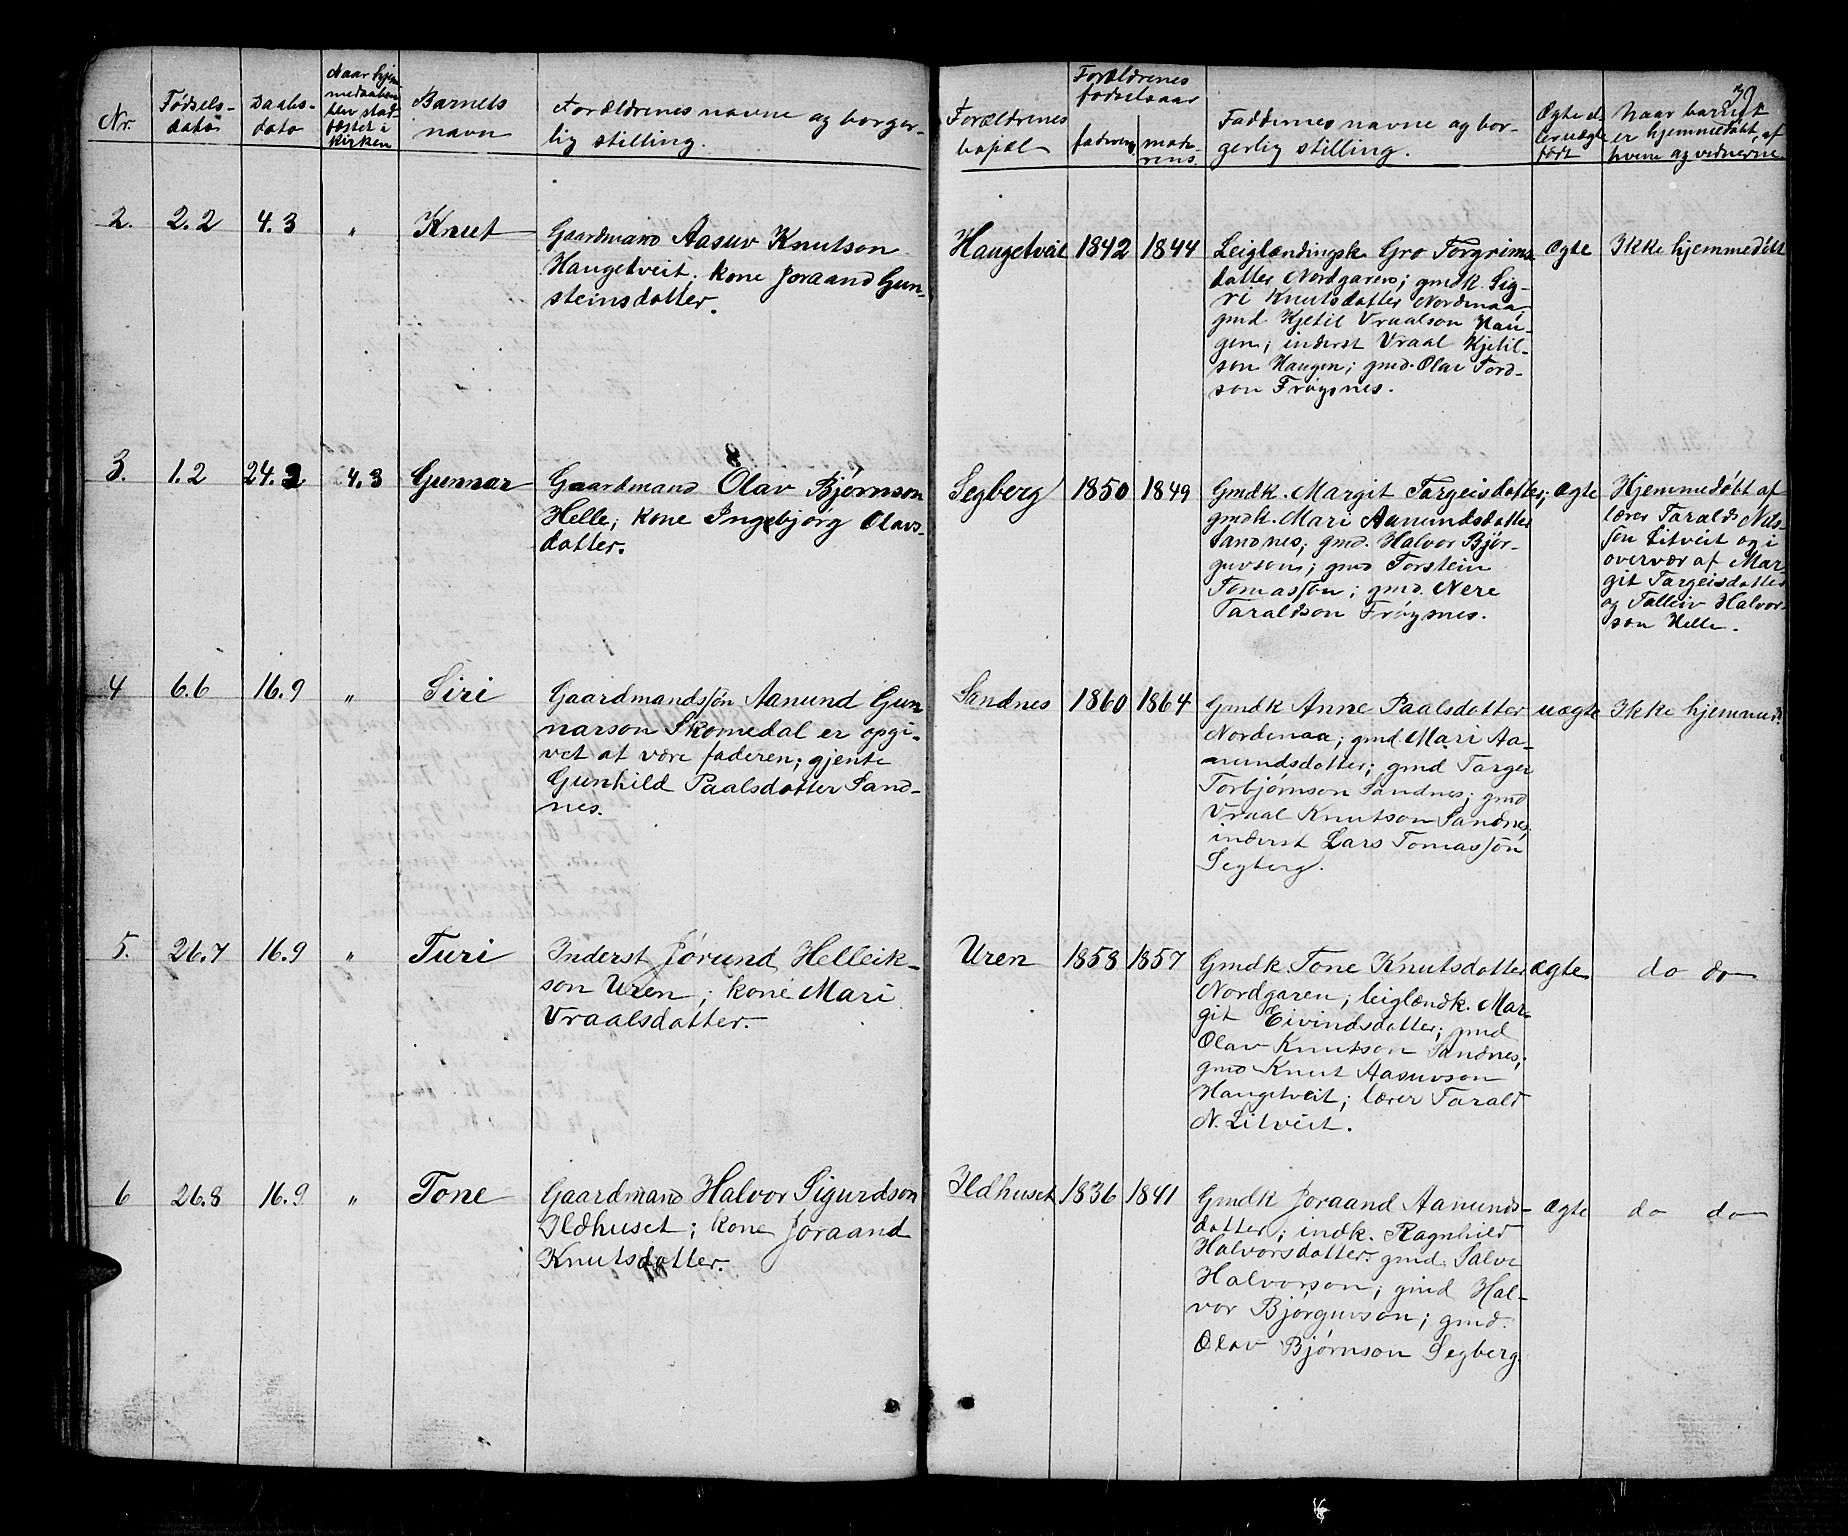 39
Nr.
Fødsels-
dato
Daabs-
dato
Naar hjem-
medaaben
blev stad-
fæstet i
kirken
Barnets
navn
Forældrenes navne og borger-
lig stilling.
Forældrenes
bopæl
Forældrenes
fødselsaar
faderens
mode-
rens
Faddernes navne og bor-
gerlig stilling.
Ægte el-
ler uægte
født
Naar barnet
er hjemmedøbt, af
hvem og vidnerne
2. 2.2 4.3 " Knut
Gaardmand Aasuv Knutson
Haugetveit; kone Joraand Gun-
steinsdatter.
Haugetveit 1842 1844
Leiglændingsk. Gro Torgrims-
datter Nordgaren; gmdk. Sig-
ri Knutsdatter Nordenaa;
gmd. Kjetil Vraalson Hau-
gen; inderst Vraal Kjetil-
son Haugen; gmd. Olav Tord-
son Frøysnes.
Ægte Ikke hjemmedøbt
3. 1.2 24.2 4.3 Gunnar
Gaardmand Olav Bjørnson
Helle; kone Ingebjørg Olavs-
datter.
Segberg 1850 1849
Gmdk. Margit Targeisdatter;
gmdk. Mari Aanundsdatter
Sandnes; gmd. Halvor Bjør-
guvson; gmd Torstein
Tomassøn; gmd. Nere
Taraldson Frøysnes.
Ægte
Hjemmedøbt af
lærer Tarald Nils-
søn Litveit og i
overvær af Mar-
git Targeisdatter
og Talleiv Halvor-
son Helle.
4 6.6 16.9 " Siri
Gaardmandssøn Aanund Gun-
narson Skomedal er opgi-
vet at være faderen; gjente
Gunhild Paalsdatter Sand-
nes.
Sandnes 1860 1864
Gmdk Anne Paalsdatter
Nordenaa; gmd. Mari Aa-
nundsdatter; gmd Targei
Torbjørnson Sandnes; gmd
Vraal Knutson Sandnes;
inderst Lars Tomassøn
Segberg.
uægte Ikke hjemmed.
5. 26.7 16.9 " Turi
Inderst Jørund Helleik-
son Uren; kone Mari
Vraalsdatter.
Uren 1858 1857
Gmdk Tone Knutsdatter
Nordgaren; leiglændk. Mar-
git Eivindsdatter; gmd
Olav Knutson Sandnes;
gmd Knut Aasuvson
Haugetveit; lærer Tarald
N. Litveit.
Ægte do do
6 26.8 16.9 " Tone
Gaardmand Halvor Sigurdson
Ildhuset; kone Joraand
Knutsdatter.
Ildhuset 1836 1841
Gmdk Joraand Aanunds-
datter; indk. Ragnhild
Halvorsdatter. gmd. Salve
Halvorson; gmd Hal-
vor Bjørguvson; gmd.
Olav Bjørnson Segberg.
Ægte do do